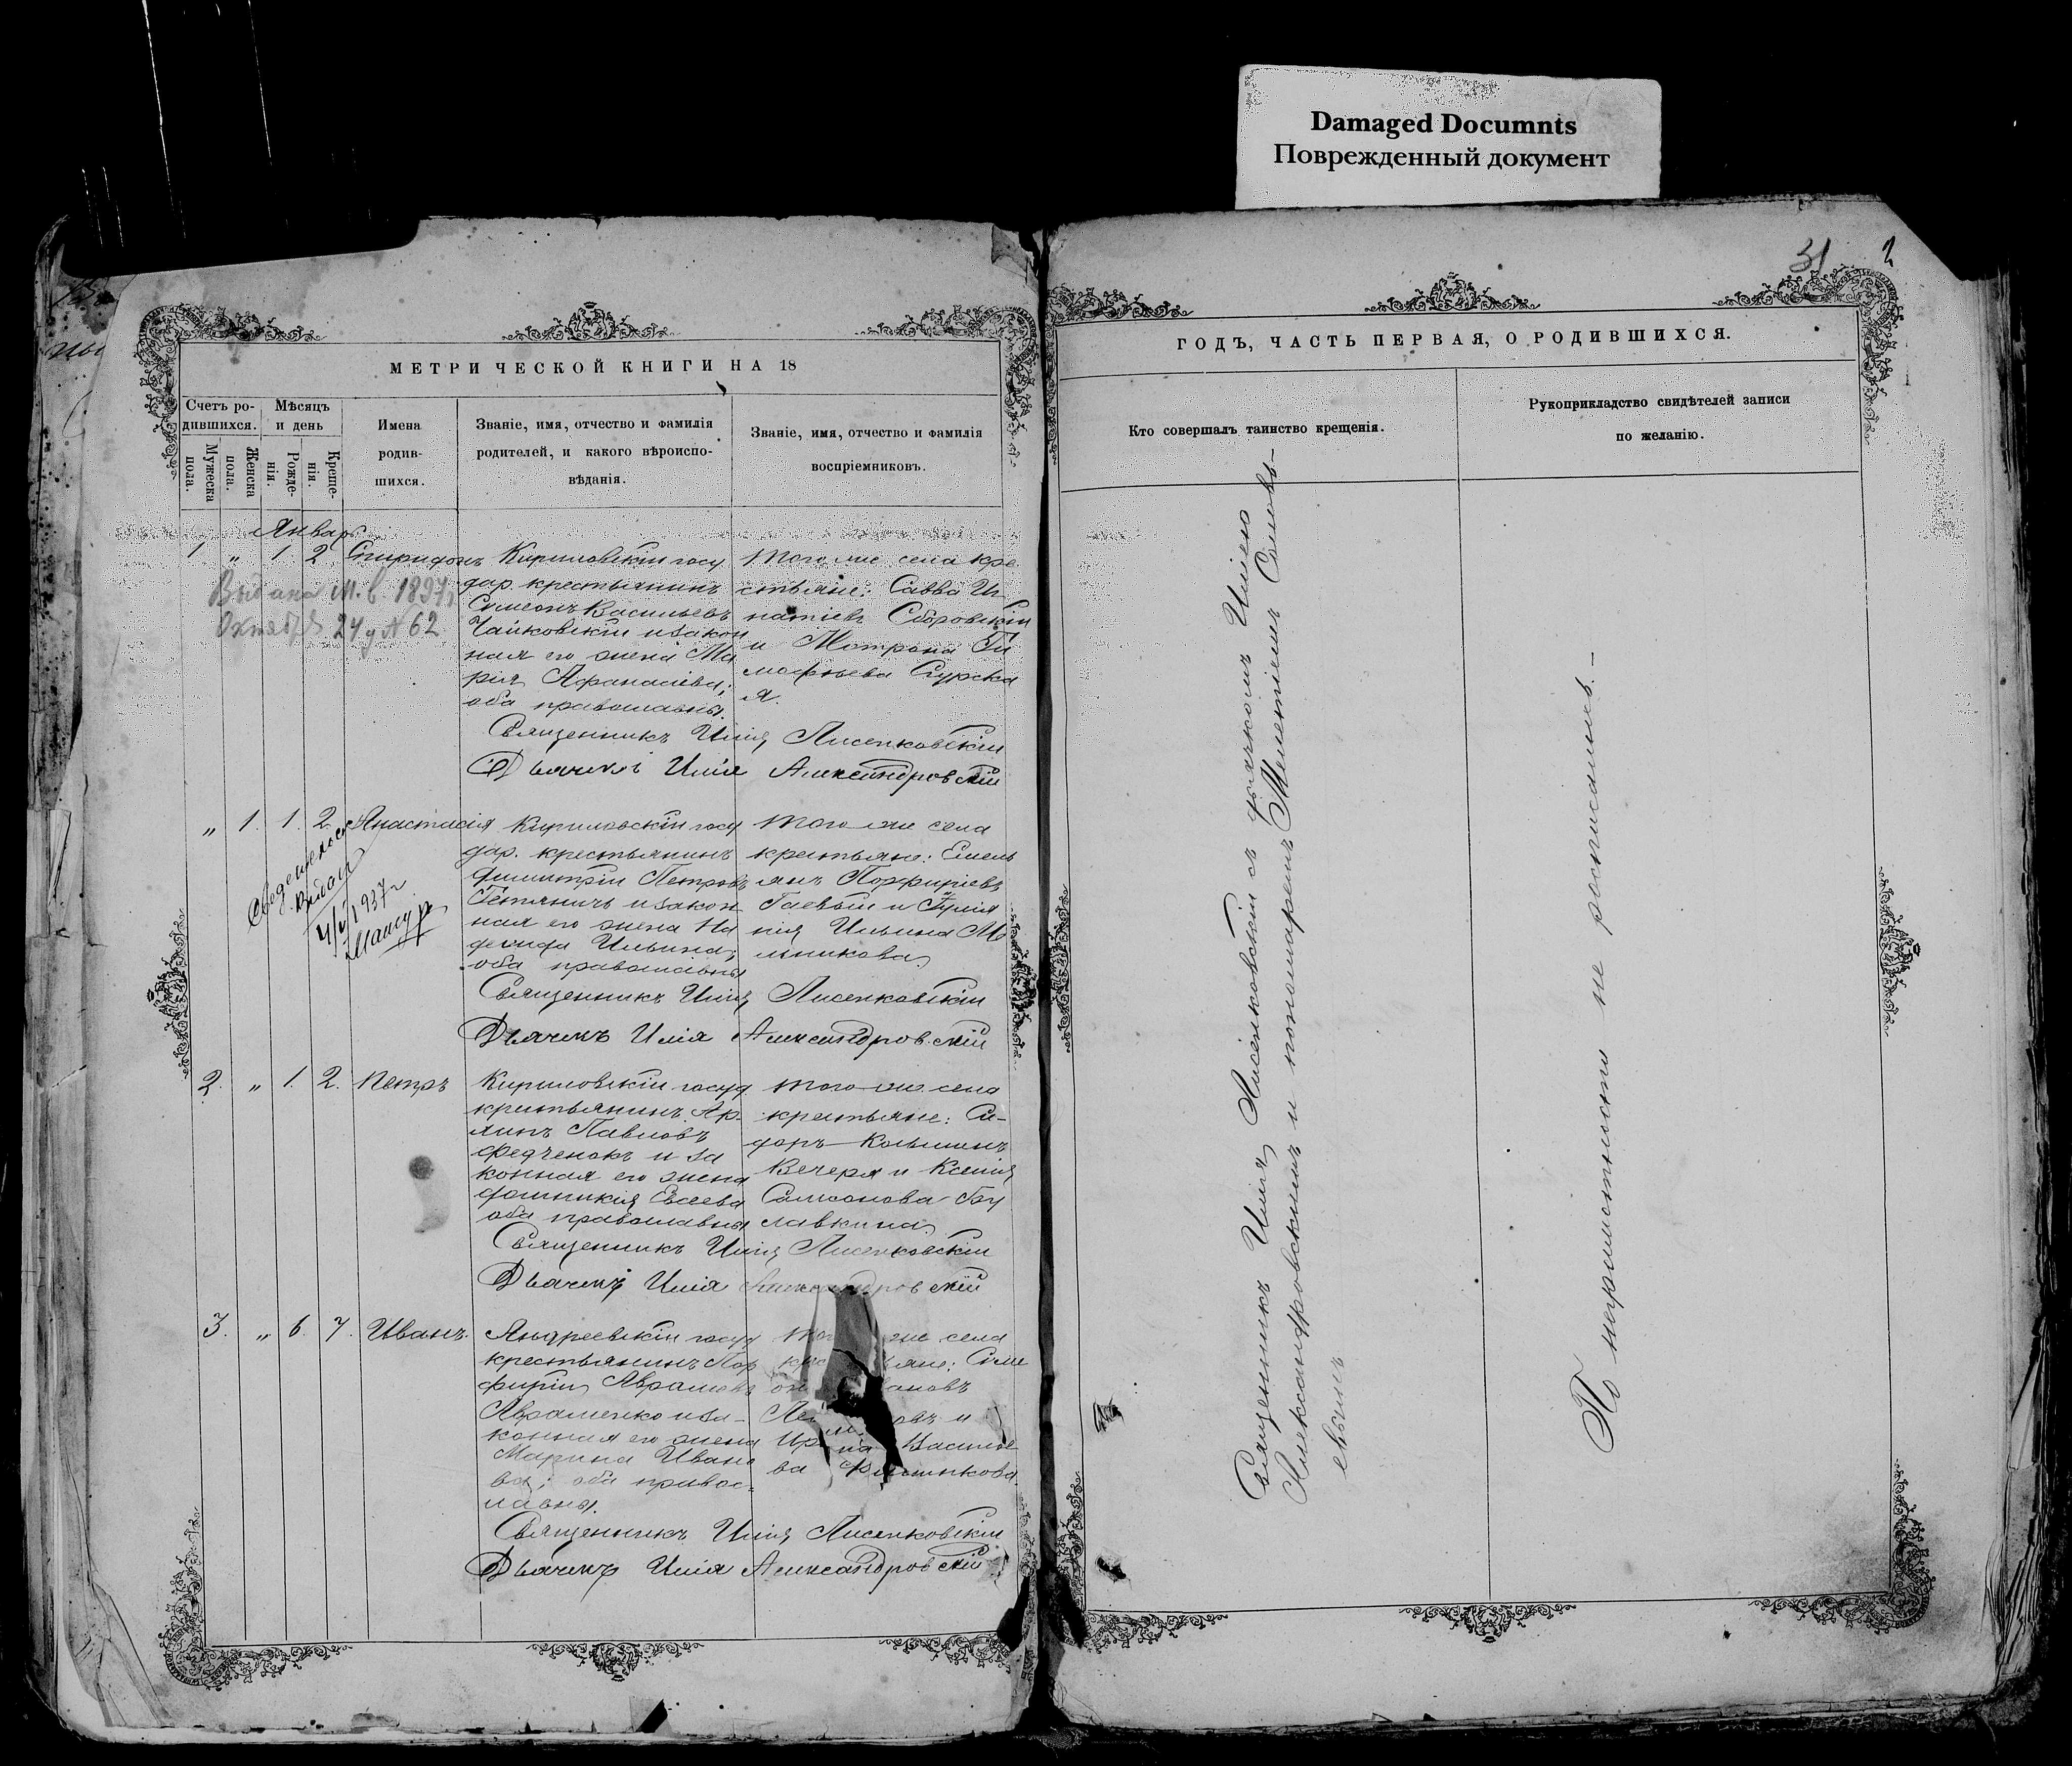 Damaged Documnts
Поврежденный документ
31 2
МЕТРИЧЕСКОЙ КНИГИ НА 18
Счетъ ро-
дившихся.
Мужеска пола.
Женска пола.
Мѣсяцъ
и день
Рожде-
нія.
Креще-
нія.
Имена
родив-
шихся.
Званіе, имя, отчество и фамилія
родителей, и какого вѣроиспо-
вѣданія.
Званіе, имя, отчество и фамилія
воспріемниковъ.
Январь
1 " 1. 2 Спиридонъ
Выдана М. в. 1897
Октября 24 д № 62
Кириловскій госу
дар. крестьянинъ
Симеонъ Васильевъ
Чайковскій и закон
ная его жена Ма
рія Афанасіева;
оба православны.
того же села кре
стьяне: Савва Иг
натіевъ Сбровскій
и Матрона Ти
мофеева Сурска
я.
Священникъ Илія Лисенковскій
Дьячекъ Илія Александровскій
" 1. 1. 2. Анастасія
выдал
1937 г
Кириловскій госу
дар. крестьянинъ
Димитрій Петровъ
и закон
ная его жена На
Ильина;
оба православны
того же села
крестьяне: Емель
янъ Порфиріевъ
Гаевый и Іулія
нія Ильина Ме
льникова
Священникъ Илія Лисенковскій
Дьячекъ Илія Александровскій
2. " 1. 2. Петръ
Кириловскій госуд
крестьянинъ Ар-
Павловъ
Федченокъ и за
конная его жена
Домникія Евсеева
оба православны
того же села
крестьяне: Си-
доръ
Вечеря и Ксенія
Самсонова Бу
славкина
Священникъ Илія Лисенковскій
Дьячекъ Илія Александровскій
3. " 6. 7. Иванъ.
Андреевскій госуд
крестьянинъ Пор
фирій Аврамовъ
Авраменко и за-
конная его жена
Марина Ивано
ва; оба правос-
лавны.
же села
Симе
и
Василіе
ва
Священникъ Илія Лисенковскій
Дьячекъ Илія Александровскій
ГОДЪ, ЧАСТЬ ПЕРВАЯ, О РОДИВШИХСЯ.
Кто совершалъ таинство крещенія.
Рукоприкладство свидѣтелей записи
по желанію.
Священникъ Илія Лисенковскій съ дьячкомъ Иліею
Александровскимъ и пономаремъ Мелетіемъ Соловь-
евымъ
По неграмотности не росписались.